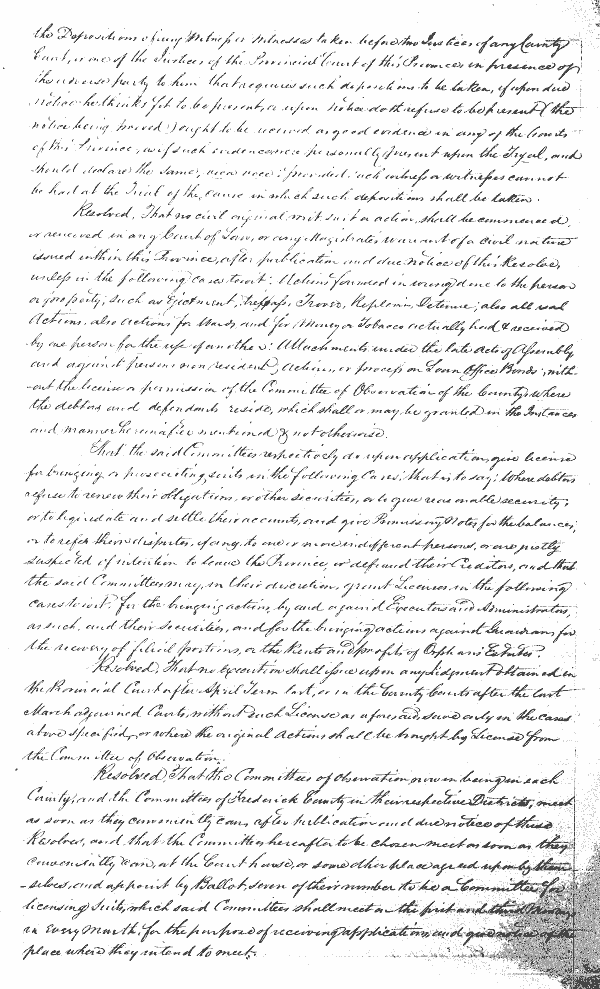 the Depositions of any Witness or Witnesses taken before two Justices of any County
Court, or one of the Justices of the Provincial Court of this Province, in presence of
the adverse party to him that requires such depositions to be taken, if upon due
notice he thinks fit to be present, or upon notice doth refuse to be present (the
notice being proved) ought to be received as good evidence in any of the Courts
of this Province, as if such evidence were personally present upon the Tryal, and
should declare the same, viva voce; provided such witness or witnesses cannot
be had at the Trial of the cause in which such depositions shall be taken.
Resolved, That no civil original writ suit or action, shall be commenced,
or renewed in any Court of Law, or any Magistrates warrant of a civil nature
issued within this Province, after publication and due notice of this Resolve,
unless in the following cases to wit: Actions founded in wrong done to the person
or property, such as Ejectment, trespass, Trover, Replevin, Detinue; also all real
Actions, also actions for Words, and for Money or Tobacco actually had & received
by one person for the use of another: Attachments under the late Acts of Assembly
and against persons non resident, Actions or process on Loan Office Bonds; with
-out the license or permission of the Committee of Observation of the County where
the debtors and defendants reside, which shall or may be granted in the Instances
and manner hereinafter mentioned & not otherwise.
That the said Committees respectively do upon application, give license
for bringing or prosecuting suits in the following Cases, that is to say: Where debtors
refuse to renew their obligations, or other securities, or to give reasonable security;
or to liquidate and settle their accounts, and give Promissory Notes for the balances;
or to refer their disputes, if any, to one or more indifferent persons, or are justly
suspected of intention to leave the Province, or defraud their Creditors, and that
the said Committees may, in their discretion, grant Licenses in the following
cases to wit. for the bringing actions, by and against Executors and Administrators,
as such, and their securities, and for the bringing actions against Guardians for
the recovery of filial portions, or the Rents and profits of Orphans Estates.
Resolved, That no Execution shall issue upon any Judgment obtained in
the Provincial Court after April Term last, or in the County Courts after the last
March adjourned Courts, without such License as aforesaid save only in the cases
above specified, or where the original actions shall be brought by License from
the Committee of Observation.
Resolved, That the Committees of Observation now in being in each
County, and the Committees of Frederick County in their respective Districts, meet
as soon as they conveniently can, after Publication and due notice of these
Resolves, and that the Committees hereafter to be chosen meet as soon as they
conveniently can, at the Court house, or some other place agreed upon by them
-selves, and appoint by Ballot seven of their number to be a Committee for
licensing Suits, which said Committees shall meet on the first and third
in every Month, for the purpose of receiving applications, and give notice of the
place where they intend to meet.